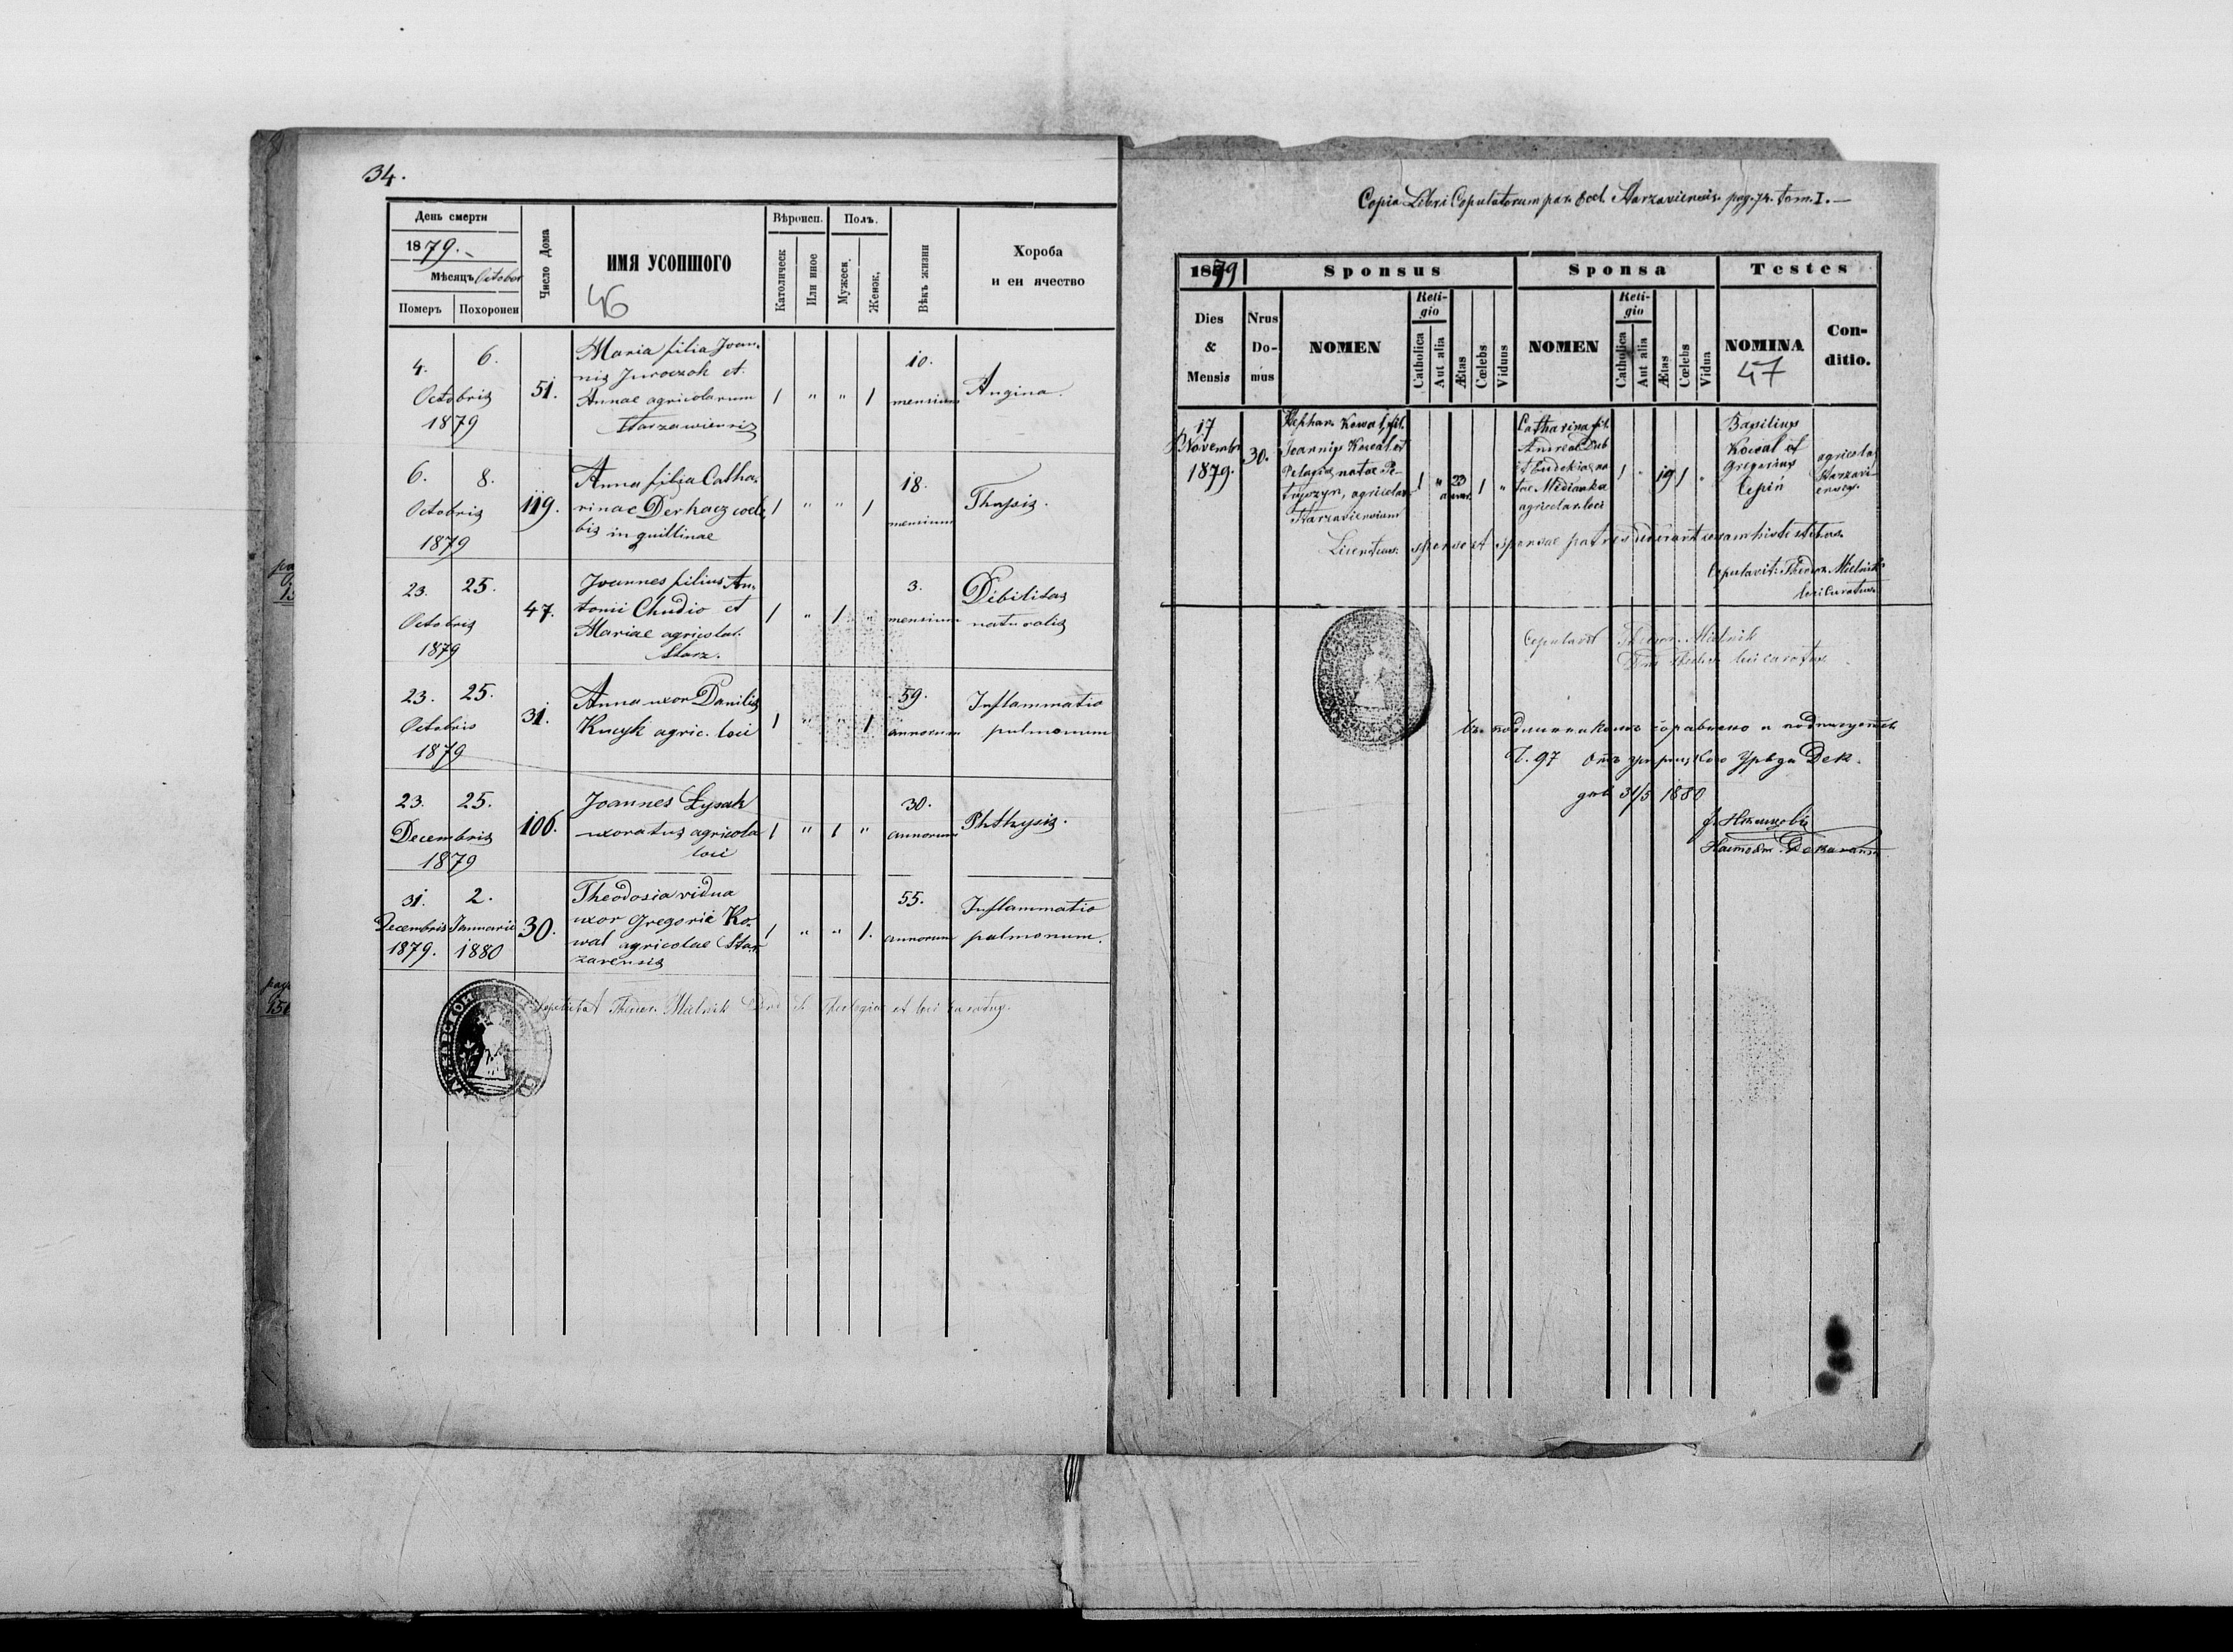 34.
День смерти
1879.
Мѣсяцъ Octobor
Померъ
Похоронен
Число Дома
ИМЯ УСОПШОГО
46
Вѣроисп.
Католическ
Или иное
Полъ.
Мужеск.
Женск.
Вѣкъ жизни
Хороба
и еи ячество
4. 6.
Octobris
1879
51.
Maria filia Joan-
nis Juroczok et
Annae agricolarum
Starzawiensis
1 " " 1
10.
mensium
Angina.
6. 8.
Octobris
1879
119.
Anna filia Catha-
rinae Derkacz coeli-
bis inquillinae
1 " " 1
18.
mensium
Thysis.
23. 25.
Octobris
1879
47.
Joannes filius An-
tonii Chudio et
Mariae agricolar.
Starz.
1 " 1 "
3.
mensium
Debilitas
naturalis
23. 25.
Octobris
1879
31.
Anna uxor Danilis
Kucyk agric. loci
1 " " 1
59.
annorum
Inflammatio
pulmonum
23. 25.
Decembris
1879
106.
Joannes Łysak
uxoratus agricola
loci
1 " 1 "
30.
annorum
Phthysis.
31. 2.
Decembris Januarii
1879. 1880
30.
Theodosia vidua
uxor Gregorii Ko-
wal agricolae Star-
zavensis
1 " " 1.
55.
annorum
Inflammatio
pulmonum.
Theodor Mielnik et loci curatus.
Copia Libri Copulatorum par. Eccl. Starzaviensis. pag. 74. tom. I. —
1879
Sponsus
Sponsa
Testes
Dies
&
Mensis
Nrus
Do-
mus
NOMEN
Reli-
gio
Catholica
Aut alia
Ætas
Cœlebs
Viduus
NOMEN
Reli-
gio
Catholica
Aut alia
Ætas
Cœlebs
Vidua
NOMINA
47
Con-
ditio.
17
Novembr
1879.
30.
Stephan Kowal, fil.
Joannis Kowal et
Pelagiæ natae Pe-
tryszyn, agricolar.
Starzaviensium
1 " 23 1 "
annor.
Catharina fil.
Andreae Dub
et Eudokiae na
tae Medianka
agricolar. loci
1 " 19 1 "
Basilius
Kowal et
Gregorius
Cepiń
agricolae
Starzavi-
enses.
Licentiam sponso et sponsae patres dederunt coram hisce testibus
Copulavit: Theodor Mielnik
loci curatus
Copulavit Theodor Mielnik
loci curatus
Ч. 97 Отъ Уряда Дек.
дня 31/5 1880